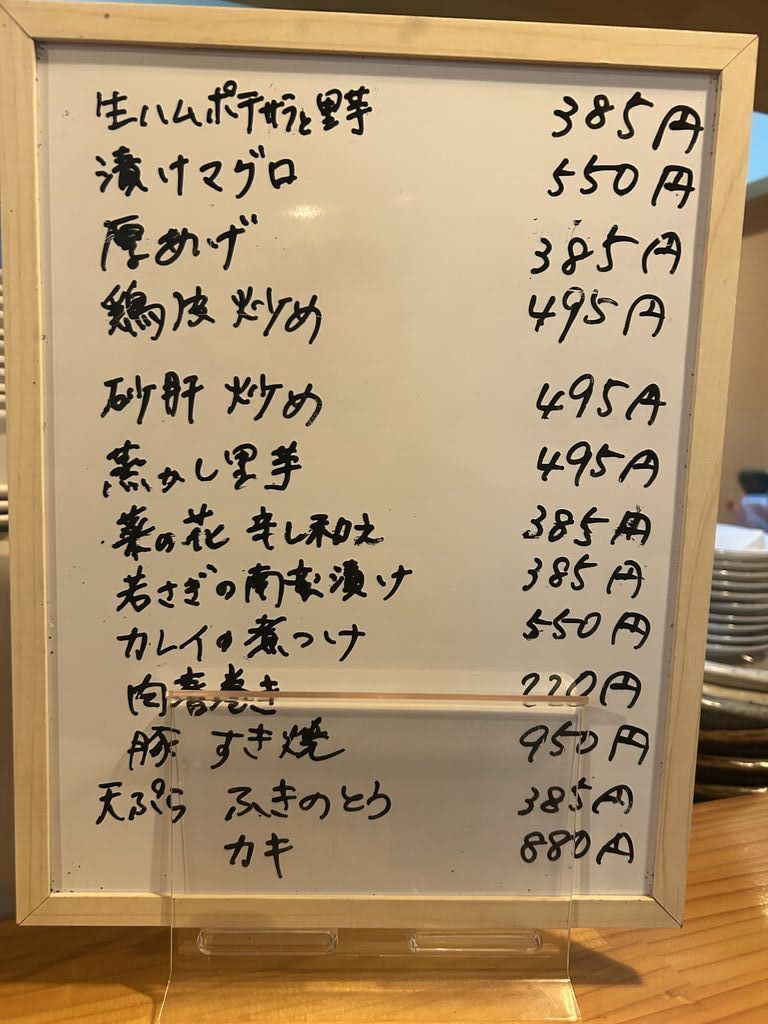 生ハムポテサラと里芋 385円
漬けマグロ 550円
厚あげ 385円
鶏皮 炒め 495円
砂肝 炒め 495円
蒸かし里芋 495円
菜の花 辛し和え 385円
若さぎの南蛮漬け 385円
カレイの煮つけ 550円
肉春巻き 220円
豚 すき焼 950円
天ぷら ふきのとう 385円
カキ 880円